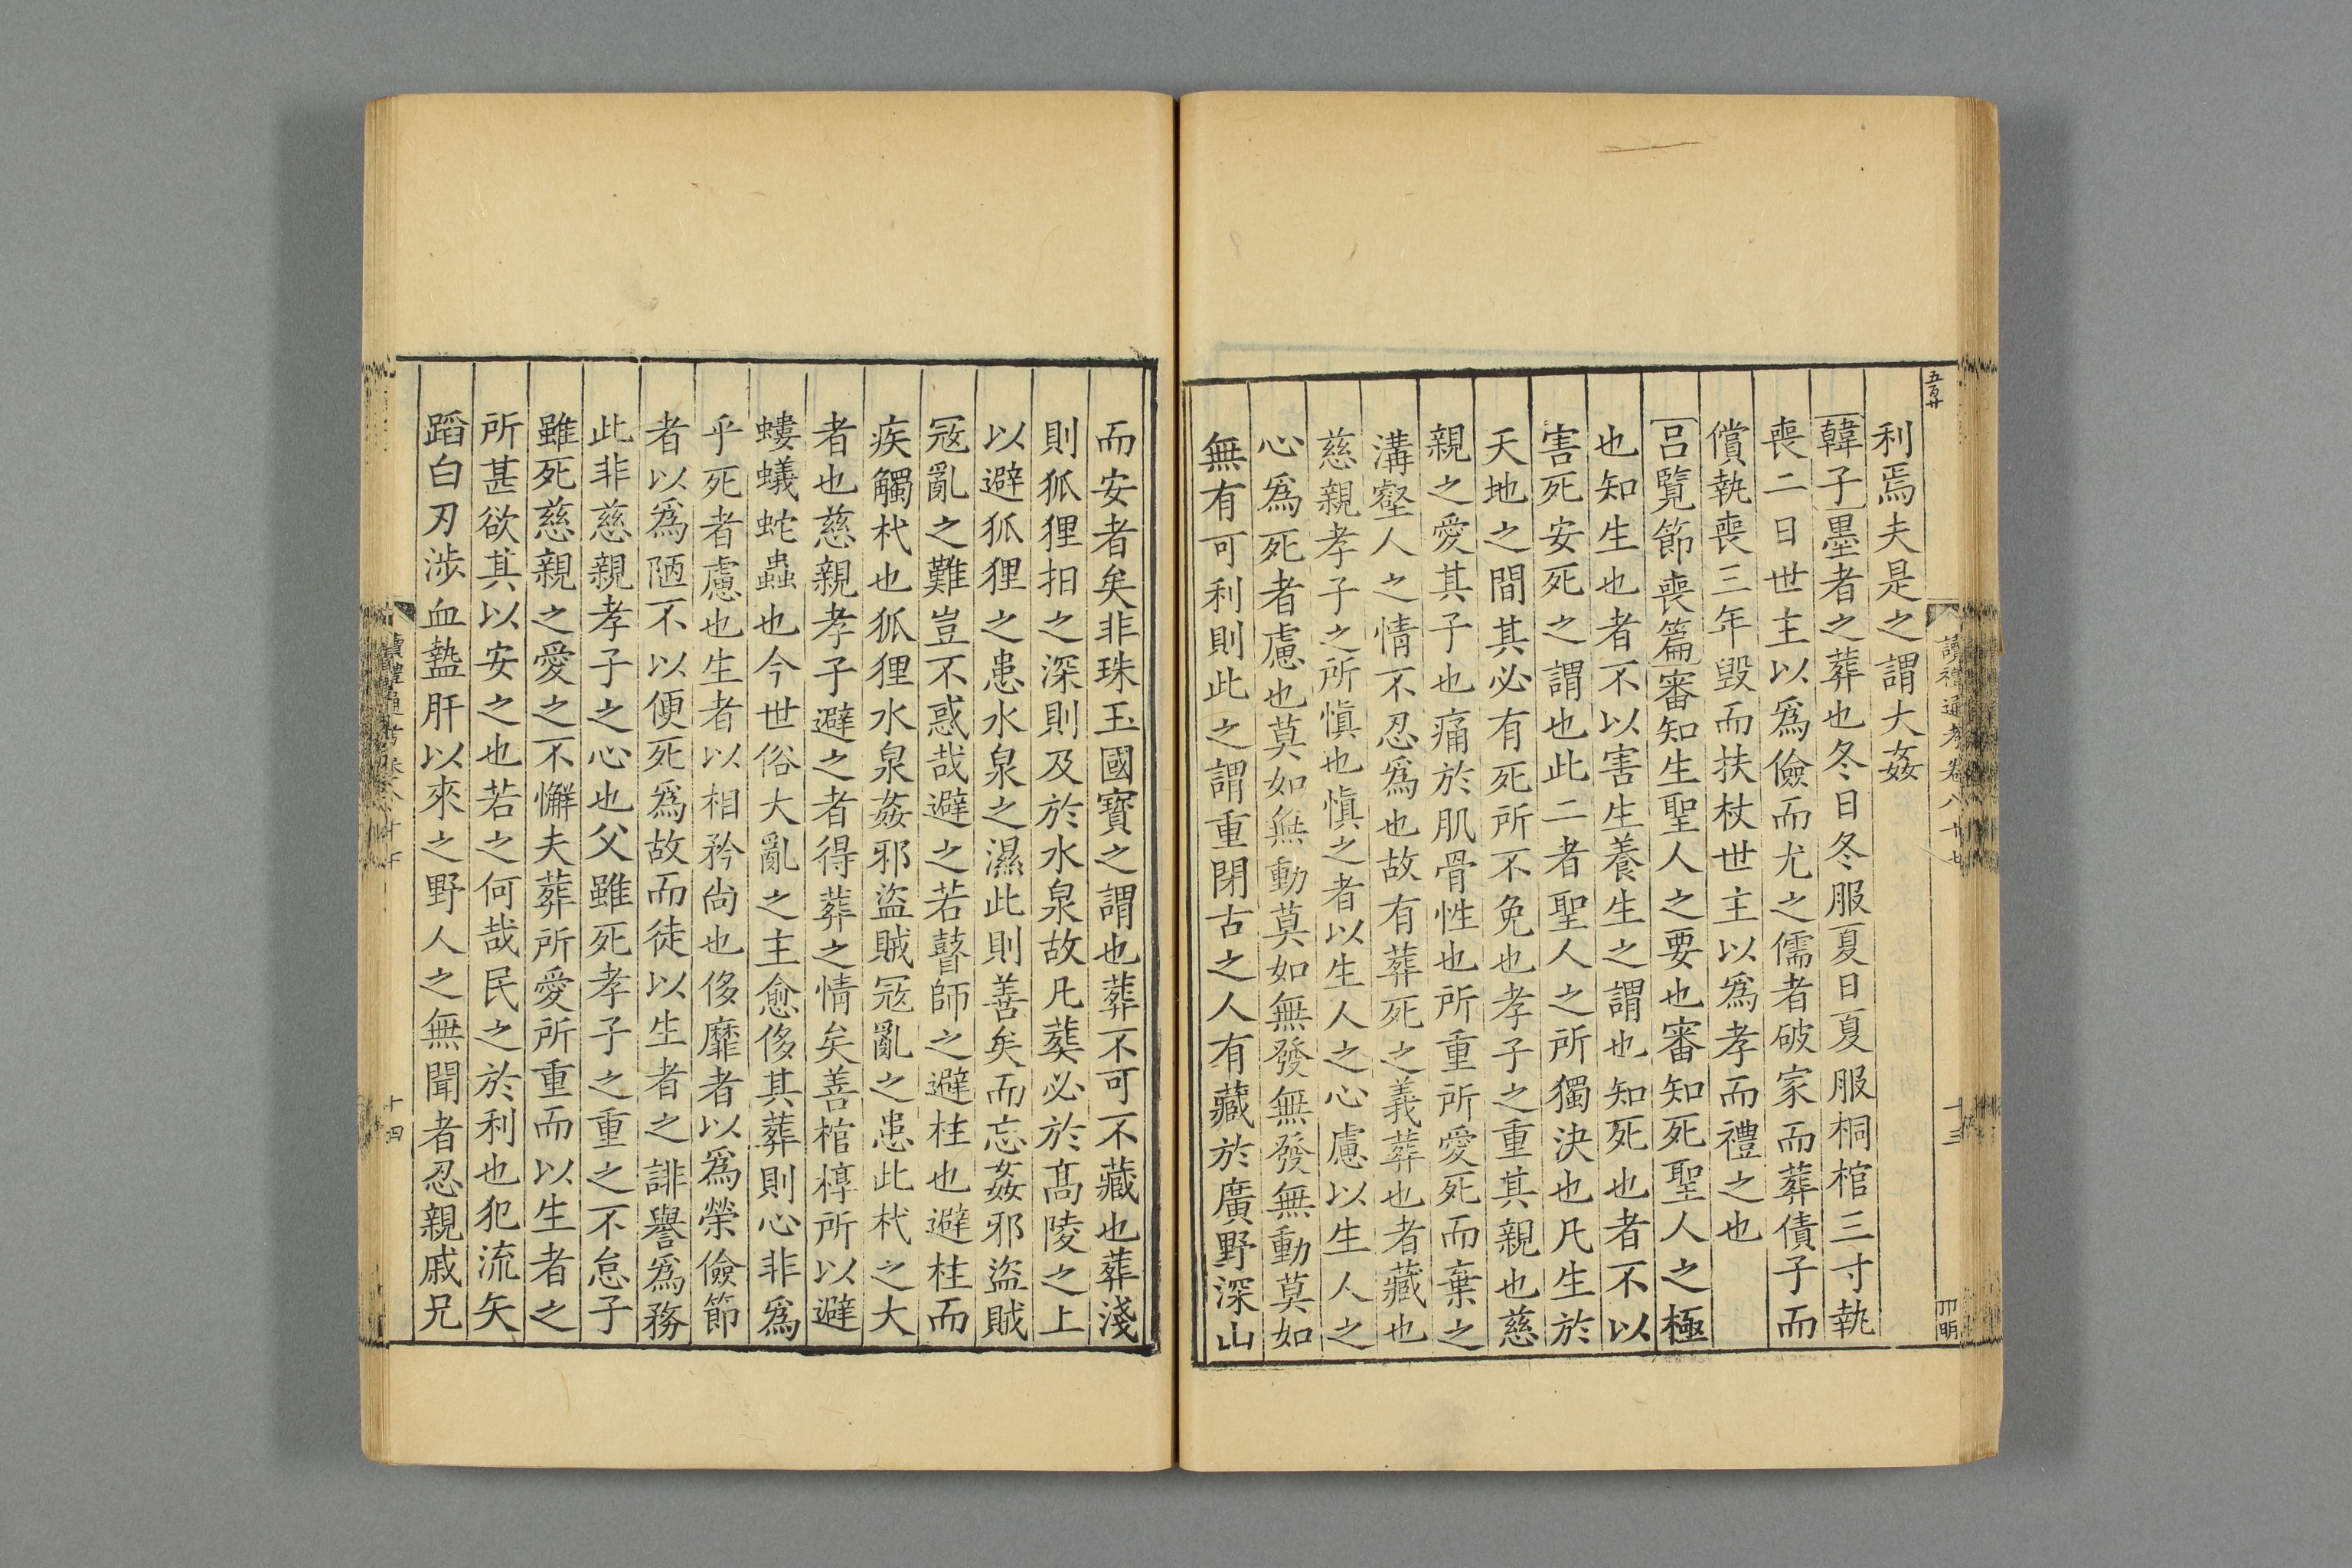 五百廿
讀禮通考卷八十七
十三
利焉夫是之謂大姦
韓子墨者之葬也冬日冬服夏日夏服桐棺三寸執
喪二日世主以爲儉而尤之儒者破家而葬債子而
償執喪三年毀而扶杖世主以爲孝而禮之也
呂覽節喪篇審知生聖人之要也審知死聖人之極
也知生也者不以害生養生之謂也知死也者不以
害死安死之謂也此二者聖人之所獨決也凡生於
天地之間其必有死所不免也孝子之重其親也慈
親之愛其子也痛於肌骨性也所重所愛死而棄之
溝壑人之情不忍爲也故有葬死之義葬也者藏也
慈親孝子之所慎也慎之者以生人之心慮以生人之
心爲死者慮也莫如無動莫如無發無發無動莫如
無有可利則此之謂重閉古之人有藏於廣野深山
而安者矣非珠玉國寶之謂也葬不可不藏也葬淺
則狐狸抇之深則及於水泉故凡葬必於高陵之上
以避狐狸之患水泉之濕此則善矣而忘姦邪盜賊
寇亂之難豈不惑哉避之若瞽師之避柱也避柱而
疾觸杙也狐狸水泉姦邪盜賊寇亂之患此杙之大
者也慈親孝子避之者得葬之情矣善棺椁所以避
螻蟻蛇蟲也今世俗大亂之主愈侈其葬則心非爲
乎死者慮也生者以相矜尚也侈靡者以爲榮儉節
者以爲陋不以便死爲故而徒以生者之誹譽爲務
此非慈親孝子之心也父雖死孝子之重之不怠子
雖死慈親之愛之不懈夫葬所愛所重而以生者之
所甚欲其以安之也若之何哉民之於利也犯流矢
蹈白刃涉血盩肝以來之野人之無聞者忍親戚兄
讀禮通考卷八十七
十四